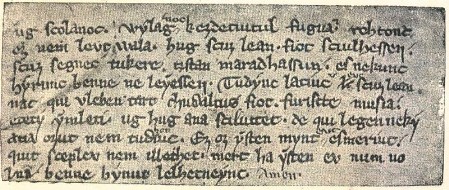 ug scolanoc. Wylagnoc kezdetuitul fugua rohtonc
ez nem levt wala. hug scuz lean. fiot sciulhessen.
scuz segnec tukere. tistan maradhassun. es nekunc
hyrunc benne ne leyessen. Tudyuc latiuc evt scuz lean
nac qui vleben tart chudaltus fiot. furiscte musia.
etety ymleti. ug hug ana sciluttet. de qui legen neky
ata ozut nem tudhotiuc. Ez oz ysten mynt evt esmeriuc.
quit sceplev nem illethet. mert ha ysten ev num uo
lna benne bynut lelhetneync. Amen.